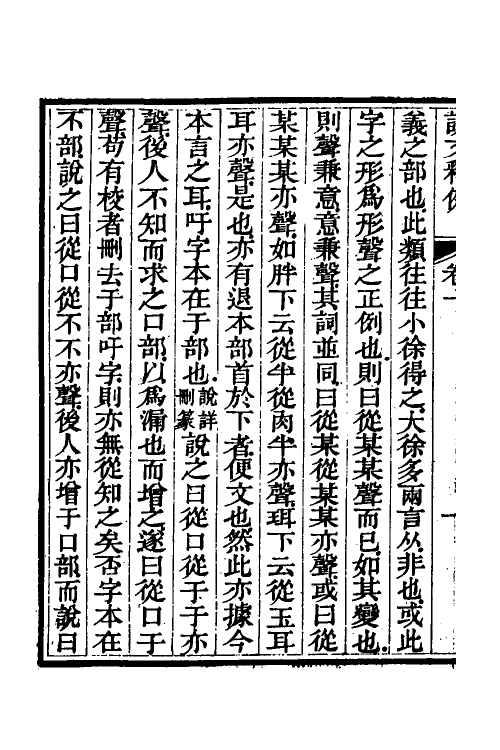 說文釋例 卷一
義之部也此類往往小徐得之大徐多兩言从非也或此
字之形爲形聲之正例也則曰從某某聲而已如其變也
則聲兼意意兼聲其詞並同曰從某從某某亦聲或曰從
某某某亦聲如胖下云從半從肉半亦聲珥下云從玉耳
耳亦聲是也亦有退本部首於下者便文也然此亦據今
本言之耳吁字本在于部也說詳刪篆說之曰從口從于于亦
聲後人不知而求之口部以爲漏也而增之遂曰從口于
聲苟有校者刪去于部吁字則亦無從知之矣否字本在
不部說之曰從口從不不亦聲後人亦增于口部而說曰